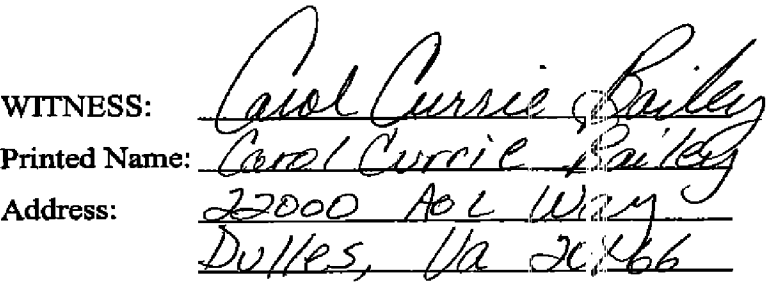 WITNESS: Carol Currie Bailey
Printed Name: Carol Currie Bailey
Address: 22000 AOL Way
Dulles, Va 20166